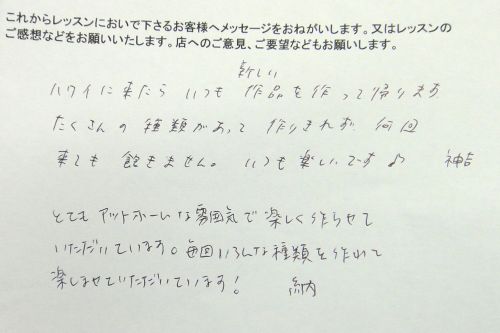 これからレッスンにおいで下さるお客様へメッセージをおねがいします。又はレッスンの
ご感想などをお願いいたします。店へのご意見、ご要望などもお願いします。
新しい
ハワイに来たら いつも 作品を作って帰ります
たくさんの 種類があって 作りきれず 何回
来ても 飽きません。 いつも楽しいです♪ 神吉
とても アットホームな雰囲気で 楽しく作らせて
いただいています。毎回いろんな種類を作れて
楽しませていただいています! 納